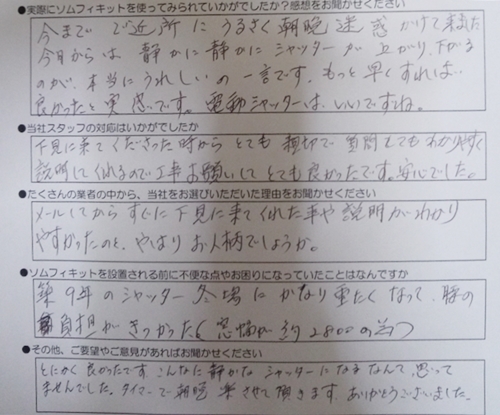 ●実際にソムフィキットを使ってみられていかがでしたか?感想をお聞かせください
今まで ご近所に うるさく 朝晩 迷惑 かけて 来ました
今日からは 静かに 静かに シャッターが 上がり、下がる
のが、本当に うれしいの 一言です。もっと 早く すれば
良かったと 実感です。電動シャッターは、いいですね。
●当社スタッフの対応はいかがでしたか
下見に来てくださった時から とても 親切で 質問しても わかりやすく
説明してくれるので 工事お願いして とても良かったです。安心でした。
●たくさんの業者の中から、当社をお選びいただいた理由をお聞かせください
メールしてから すぐに 下見に 来てくれた事や 説明が わかり
やすかったのと、やはり お人柄でしょうか。
●ソムフィキットを設置される前に不便な点やお困りになっていたことはなんですか
築9年の シャッター 冬場に かなり 重たく なって、腕の
負担が きつかった 窓幅が 約2800の為
●その他、ご要望やご意見があればお聞かせください
とにかく 良かったです こんなに 静かな シャッターに なる なんて 思って
ませんでした。タイマーで 朝晩 楽させて 頂きます。ありがとうございました。